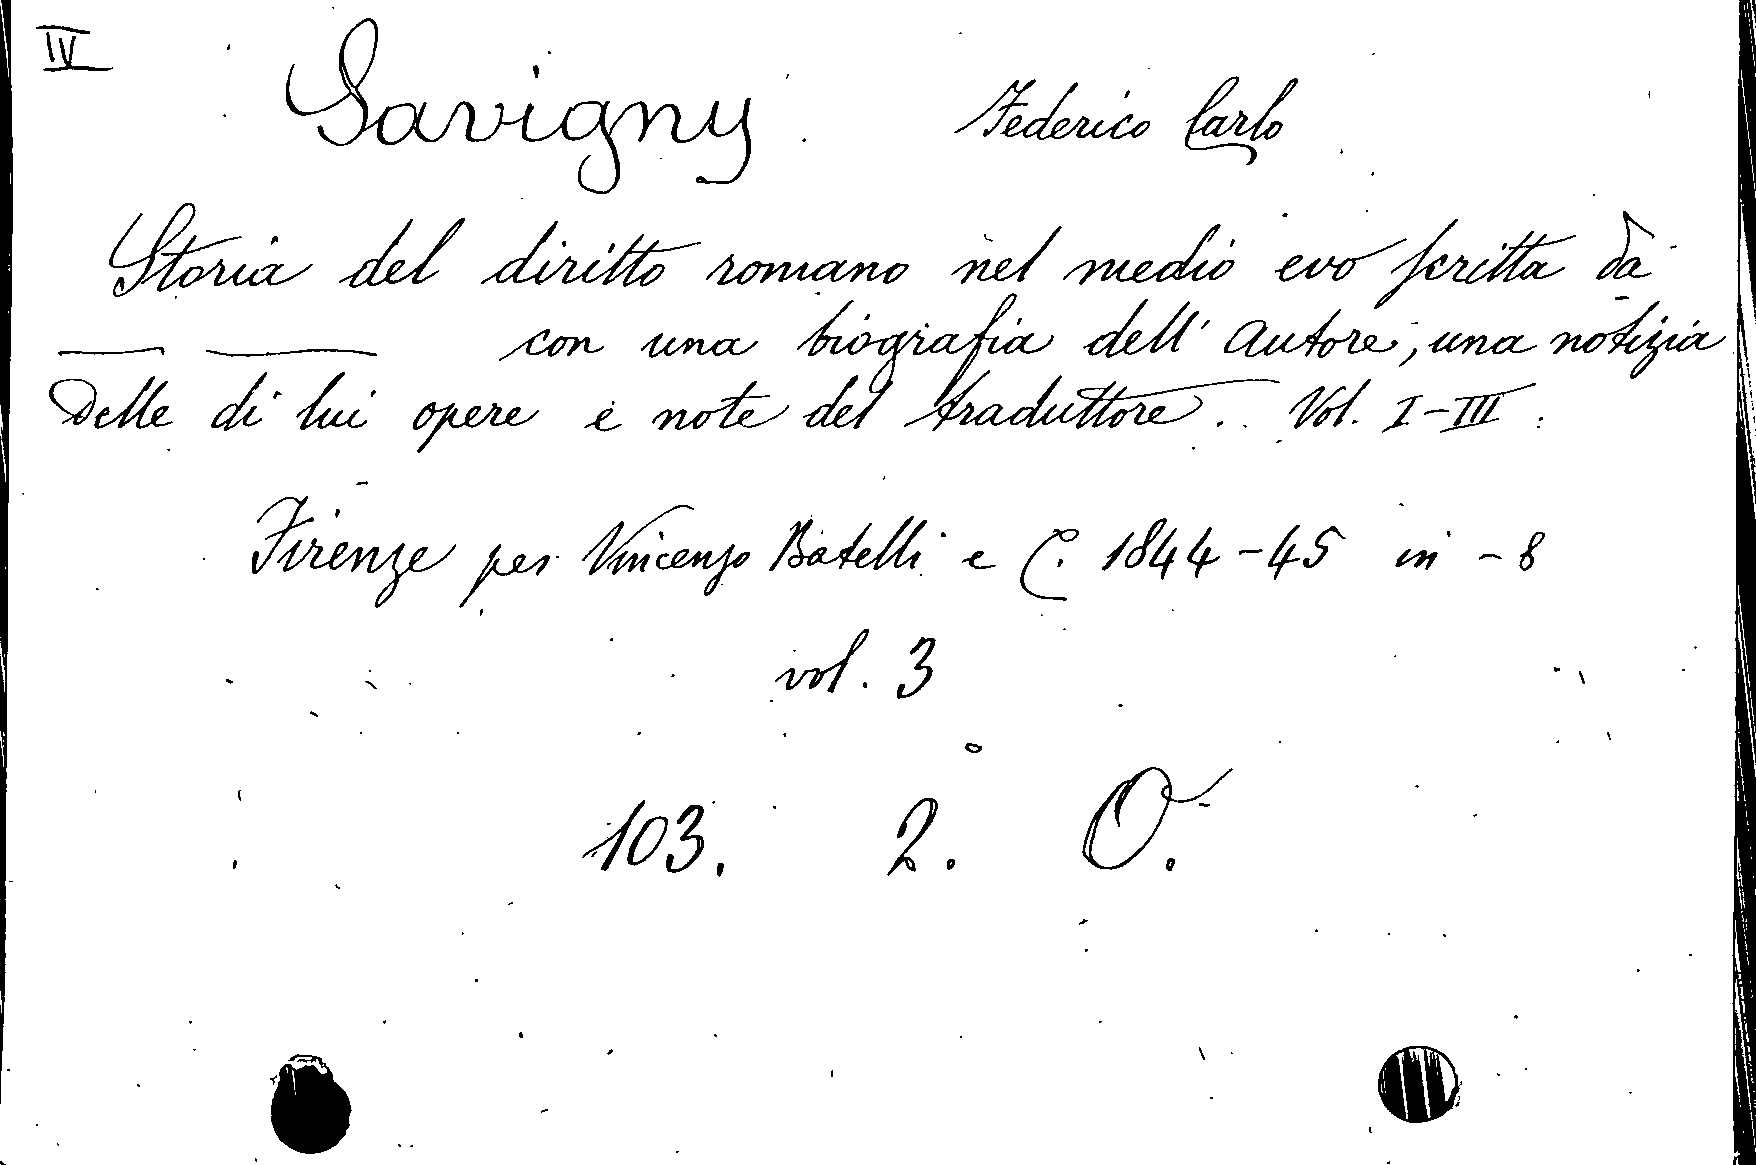 IV
Savigny Federico Carlo
Storia del diritto romano nel medio evo scritta da
— — con una biografia dell' autore, una notizia
delle di lui opere e note del traduttore. Vol. I-III.
Firenze per Vincenzo Batelli e C. 1844-45 in-8
vol. 3
103. 2. O.